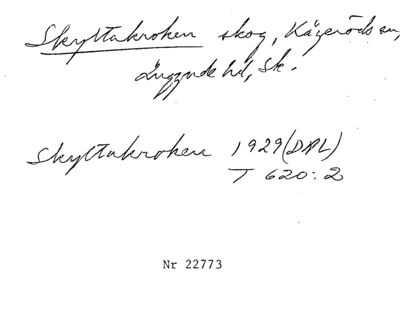 Skyttakroken skog, Kågeröds sn,
Luggude hd, Sk.
Skyttakroken 1929 (DAL)
T 620:2
Nr 22773